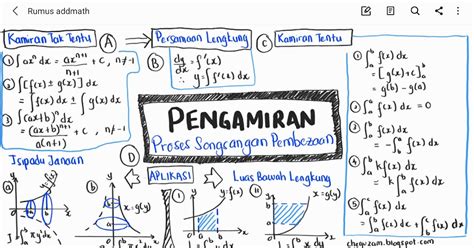 Rumus addmath
Kamiran Tak Tentu
A
① ∫ax^n dx = ax^(n+1)/(n+1) + c, n≠-1
② ∫[f(x) ± g(x)] dx
= ∫f(x) dx ± ∫g(x) dx
③ ∫(ax+b)^n dx
= (ax+b)^(n+1)/a(n+1) + c, n≠-1
Persamaan Lengkung
B
dy/dx = f'(x)
∴ y = ∫f'(x) dx
C
Kamiran Tentu
① ∫_a^b f(x) dx
= [g(x)+c]_a^b
= g(b) - g(a)
② ∫_a^a f(x) dx = 0
③ ∫_a^b f(x) dx
= -∫_b^a f(x) dx
④ ∫_a^b kf(x) dx
= k∫_a^b f(x) dx
⑤ ∫_a^b f(x) dx + ∫_b^c f(x) dx
PENGAMIRAN
Proses Songsangan Pembezaan
D
APLIKASI
Isipadu Janaan
a
y
b
y
a
x
Luas Bawah Lengkung
i
y
y=f(x)
a
b
x
ii
y
b
a
x=g(y)
x
chequzam.blogspot.com